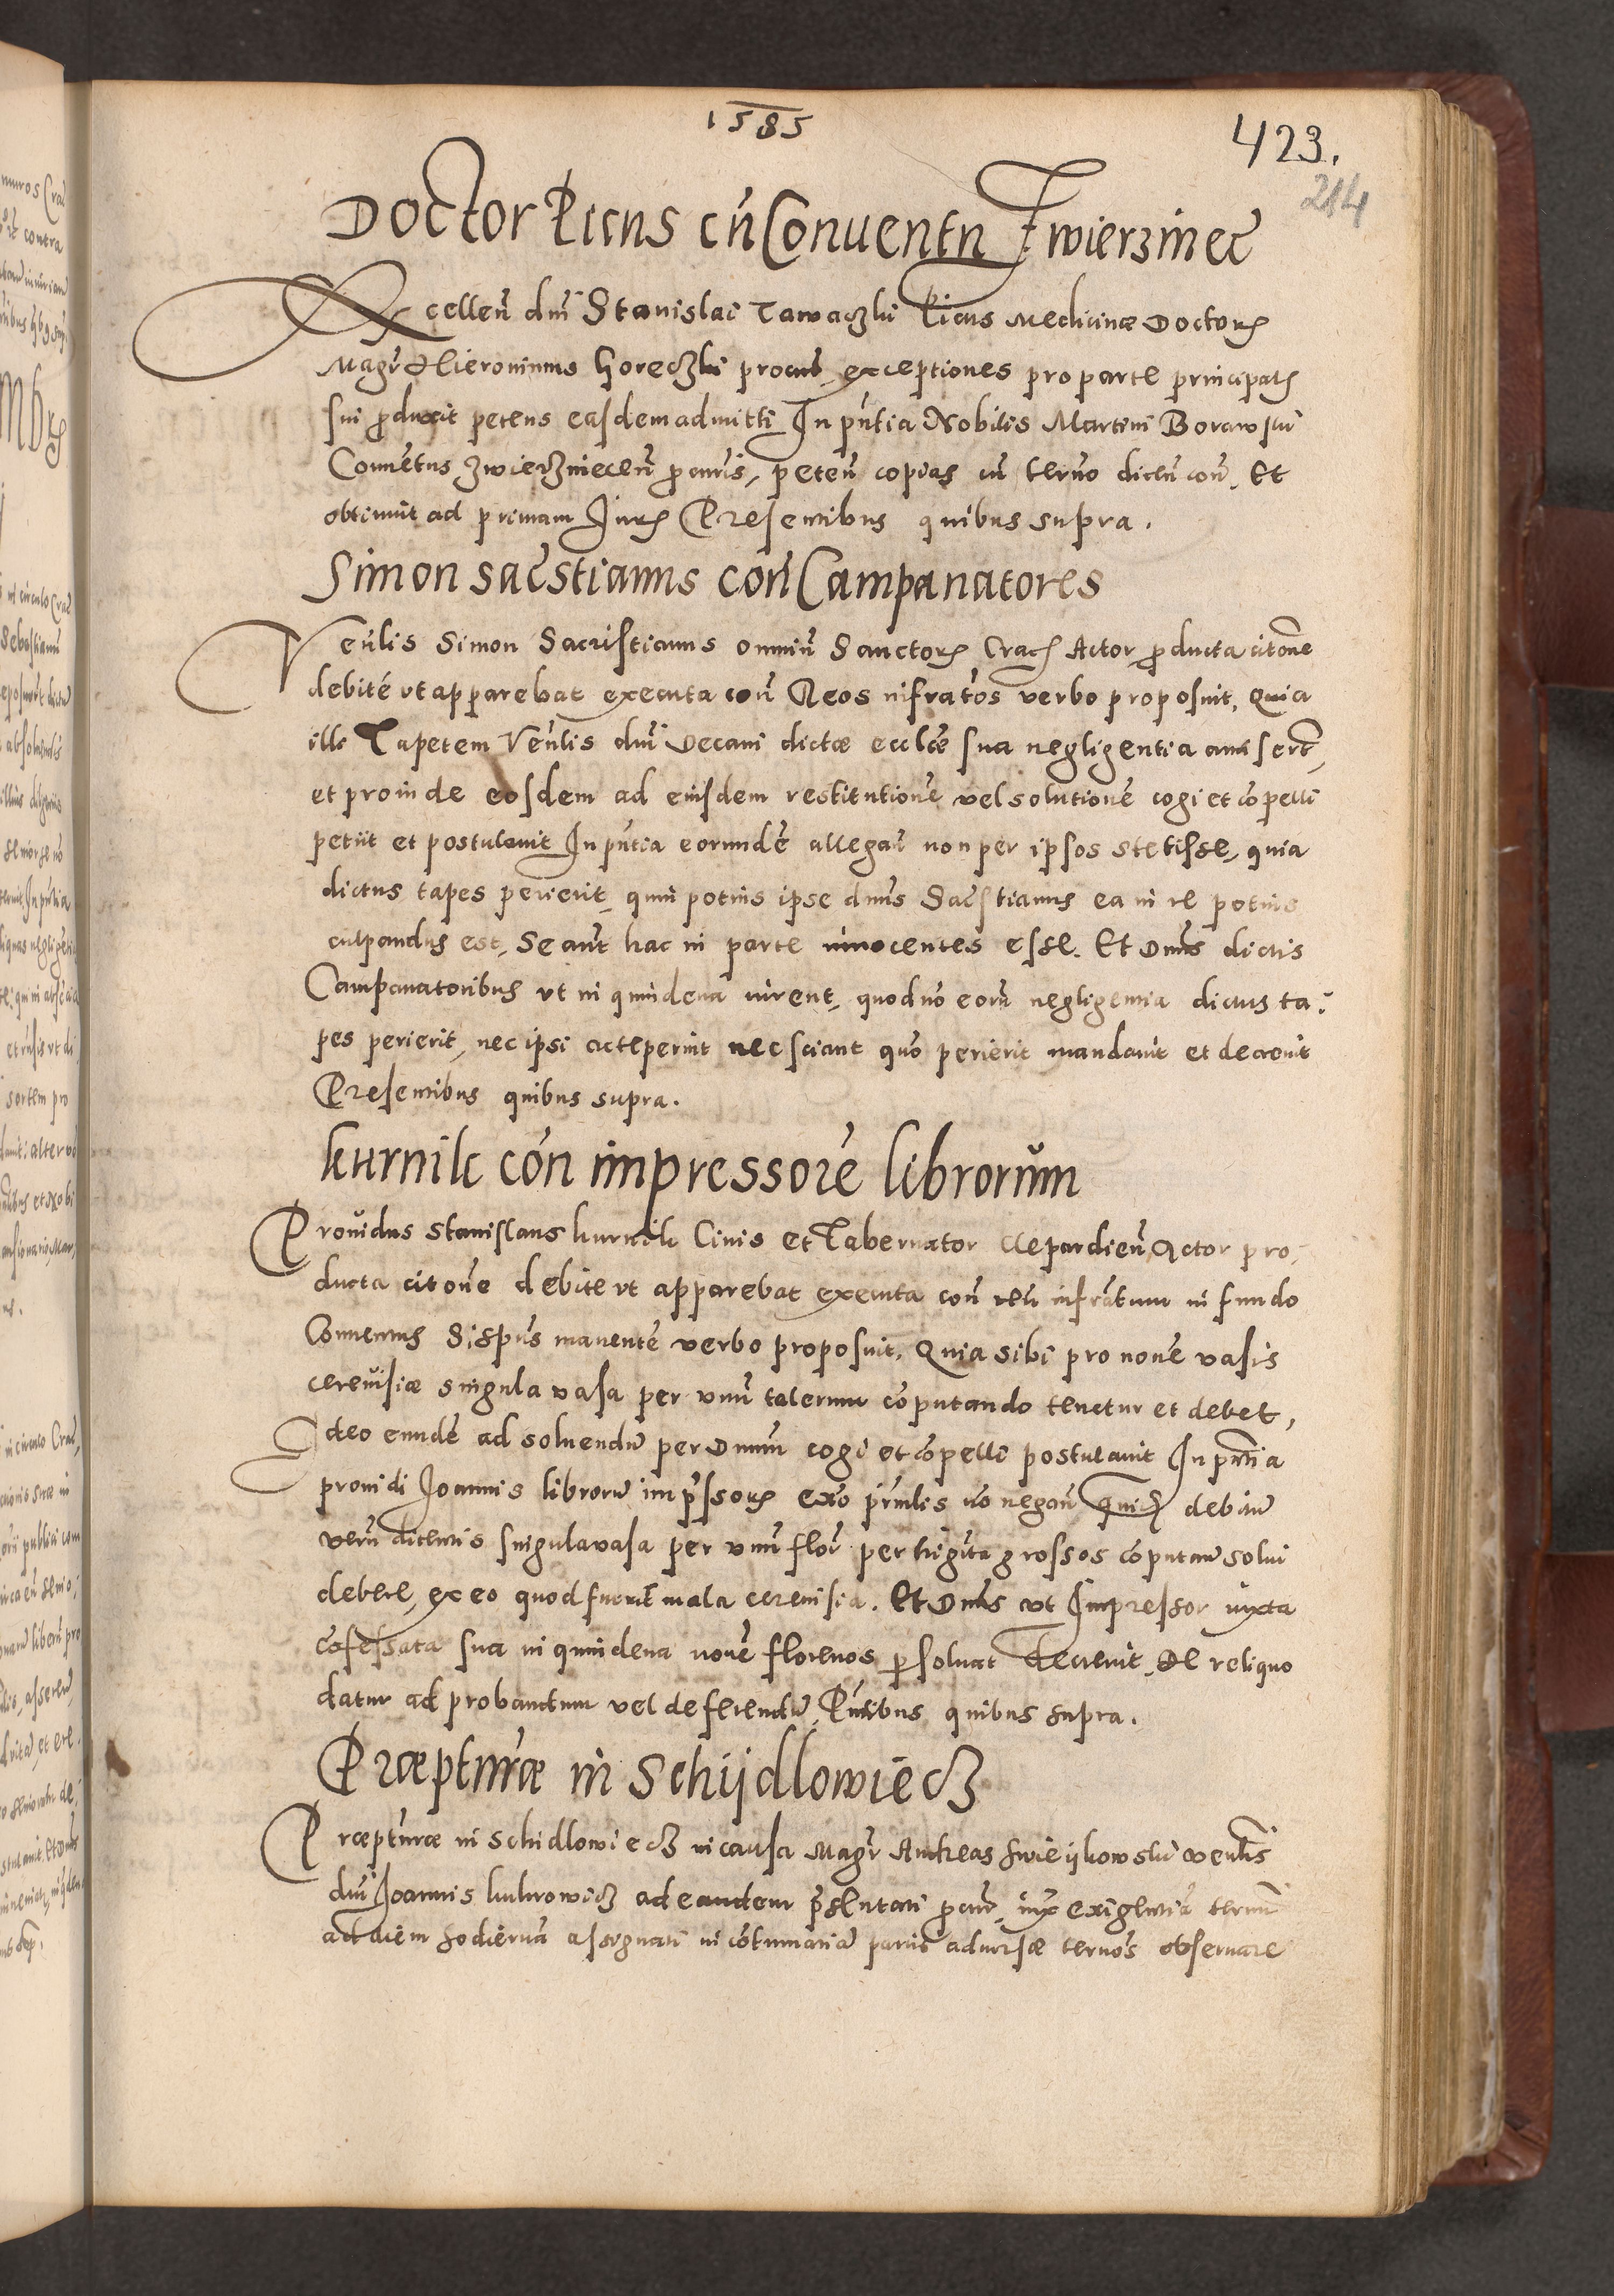 1585
423.
214
Doctor Picus cū Conventu Zwierzinec̄
Excellen̄ dn̄i Stanislai Zawaczki Picus Medicinæ Doctoris
Magr̄ Hieronimus Goreczki procur̄ exceptiones pro parte principalis
sui produxit petens easdem admitti In pn̄tia Nobilis Martini Borawski
Conventus Zwierzniecen̄ procur̄is, peten̄ copias cū termo dicen̄ con̄. Et
obtinuit ad primam Juris Presentibus quibus supra.
Simon sac̄stianus con̄ Campanatores
Ven̄lis Simon Sacristianus omniū Sanctorum Crac̄ Actor producta citōne
debite vt apparebat executa con̄ Reos infratos verbo proposuit, Quia
illi Tapetem Ven̄lis dn̄i Decani dictæ ecclīæ sua negligentia amiserūt,
et proinde eosdem ad eiusdem restitutionē vel solutionē cogi et cōpelli
petiit et postulavit In pn̄tia eorundē allegan̄ non per ipsos stetisse, quia
dictus tapes perierit, quin potius ipse dn̄us Sac̄stianus ea in re potius
culpandus est, Se aūt hac in parte innocentes esse. Et Dn̄us dictis
Campanatoribus vt in quindena iurent, quod nō eorū negligentia dictus ta:
pes perierit, nec ipsi acceperint nec sciant quō perierit mandavit et decrevit
Presentibus quibus supra.
Kurnik cōn impressorē librorum
Providus Stanislaus Kurnik Civis et Tabernator Clepardien̄ Actor pro,
ducta citōne debite vt apparebat executa con̄ reū infrātum in fundo
Conventus S: Spūs manentē verbo proposuit, Quia sibi pro novē vasis
cerevisiæ singula vasa per vnū talerum cōputando tenetur et debet,
Ideo eundē ad solvendū per Dn̄um cogi et cōpelli postulavit In pn̄tia
providi Joannis librorū imp̄ssoris ex̄o pn̄alis nō negan̄ debitū
verū dicentis singula vasa per vnū flor̄ per trigīta grossos cōputan̄ solvi
debere, ex eo quod fuerit mala cerevisia. Et Dn̄us vt Impressor iuxta
cōfessata sua in quindena novē florenos persolvat Decrevit, De reliquo
datur ad probandum vel deferendū, Pn̄tibus quibus supra.
Præptūræ in Schijdlowiecz
Præptūræ in Schidlowiecz in causa Magr̄ Andreas Swieijkowski Ven̄lis
dn̄i Joannis Kukrowicz ad eandem p̄sentati procur̄, iux̄ exigentiā termi
ad diem hodiernā assignati in cōtumaciā partis adversæ termos observare